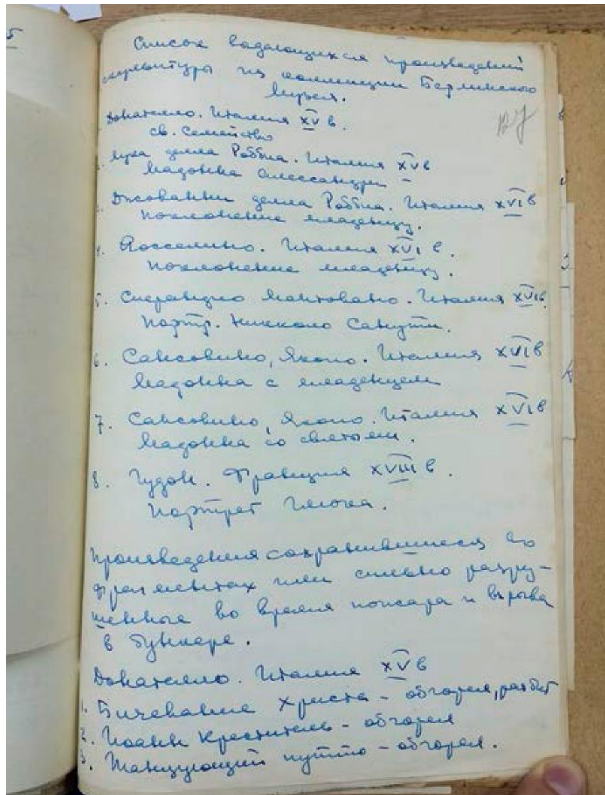 Список выдающихся произведений
скульптуры из коллекции Берлинского
Музея.
Донателло. Италия XV в.
св. Семейство
Лука делла Роббиа. Италия XV в
Мадонна Алессандри
Джованни делла Роббиа. Италия XVI в
поклонение младенцу.
4. Росселино. Италия XVI в.
поклонение младенцу.
5. Сперандио Мантовано. Италия XVI в.
Портр. Никколо Санути.
6. Сансовино, Якопо. Италия XVI в
Мадонна с младенцем
7. Сансовино, Якопо. Италия XVI в
Мадонна со святыми.
8. Гудон. Франция XVIII в.
Портрет Глюка.
Произведения сохранившиеся во
фрагментах или сильно разру-
шенные во время пожара и взрыва
в бункере.
Донателло. Италия XV в
1. Бичевание Христа - обгорел, разбит
2. Иоанн Креститель - обгорел
3. Танцующий путто - обгорел.